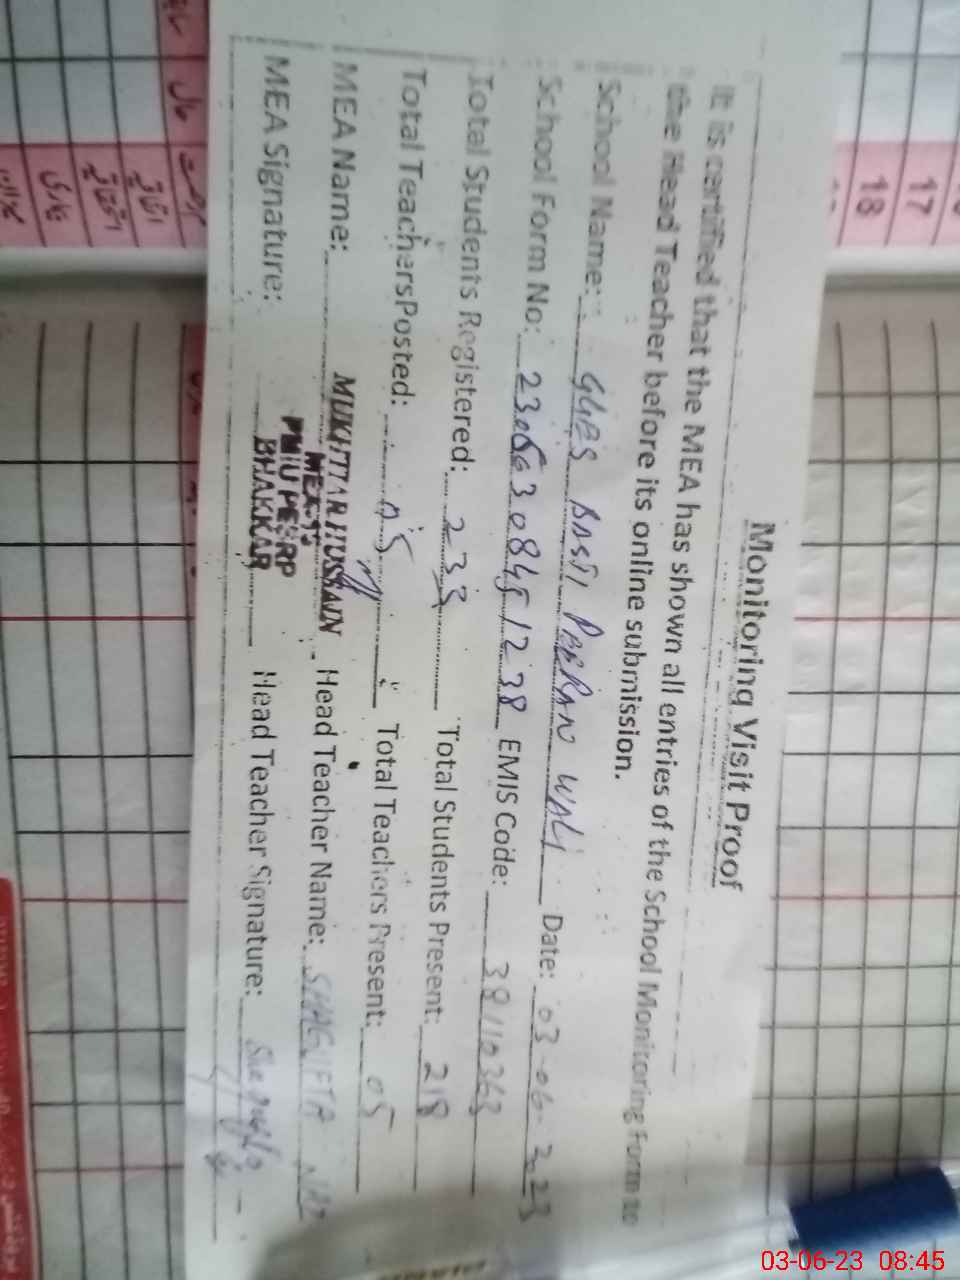 Monitoring Visit Proof
It is certified that the MEA has shown all entries of the School Monitoring Form to
the Head Teacher before its online submission.
School Name: GGES BASTI PEERAN WALI Date: 03-06-2023
School Form No: 23.0663084512 38 EMIS Code: 38110363
Total Students Registered: 233 Total Students Present: 218
Total Teachers Posted: 05 Total Teachers Present: 05
MEA Name: MUKHTIAR HUSSAIN Head Teacher Name: SHAGUFTA NAZ
MEA Signature: PMIU PESRP
BHAKKAR Head Teacher Signature:
17
18
03-06-23 08:45